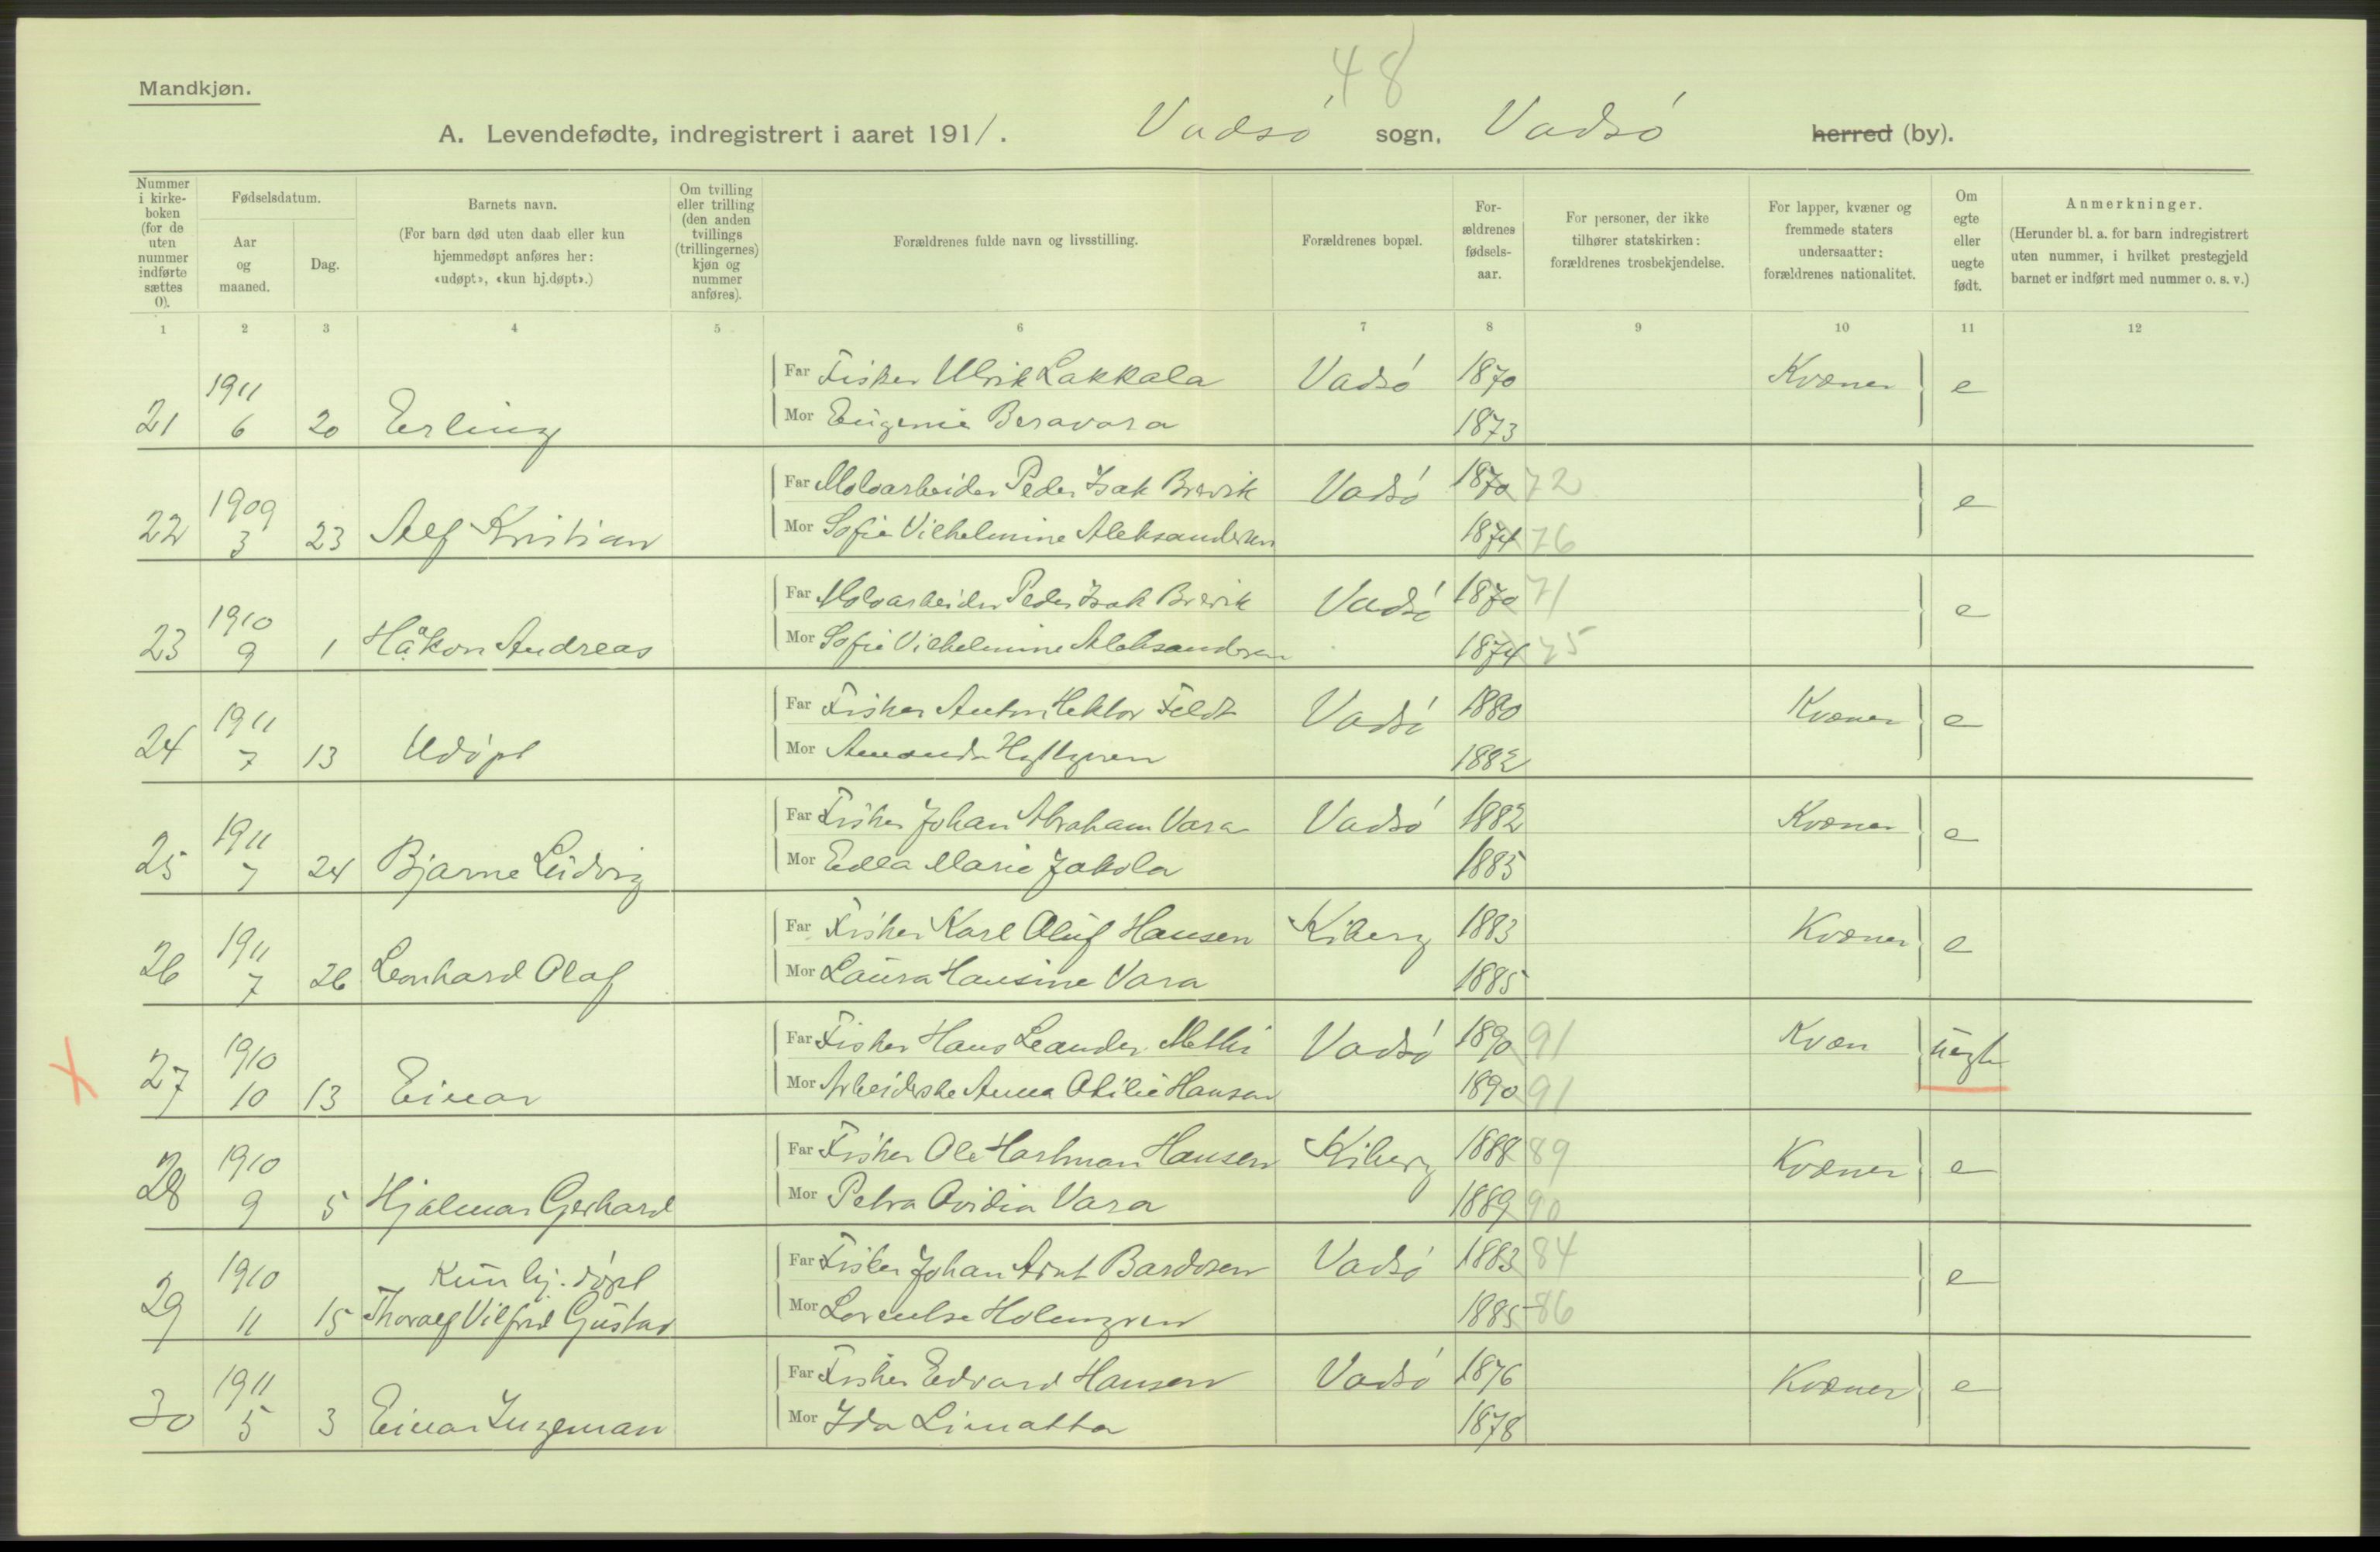 48
Mandkjøn.
A. Levendefødte, indregistrert i aaret 1911. Vadsø sogn, Vadsø herred (by).
Nummer i kirke-boken (for de uten nummer indførte sættes 0).
Fødselsdatum.
Aar og maaned.
Dag.
Barnets navn.
(For barn død uten daab eller kun hjemmedøpt anføres her: «udøpt», «kun hj.døpt».)
Om tvilling eller trilling (den anden tvillings (trillingernes) kjøn og nummer anføres).
Forældrenes fulde navn og livsstilling.
Forældrenes bopæl.
For-ældrenes fødsels-aar.
For personer, der ikke tilhører statskirken: forældrenes trosbekjendelse.
For lapper, kvæner og fremmede staters undersaatter: forældrenes nationalitet.
Om egte eller uegte født.
Anmerkninger.
(Herunder bl. a. for barn indregistrert uten nummer, i hvilket prestegjeld barnet er indført med nummer o. s. v.)
1 2 3 4 5 6 7 8 9 10 11 12
21 1911 6 20 Erling Far Fisker Ulrik Lakkala Vadsø 1870 Kvæner e
Mor Eugenie Beravara 1873
22 1909 3 23 Alf Kristian Far Moloarbeider Peder Isak Brevik Vadsø 1870 72 e
Mor Sofie Vilhelmine Aleksandersen 1874 76
23 1910 9 1 Håkon Andreas Far Moloarbeider Peder Isak Brevik Vadsø 1870 71 e
Mor Sofie Vilhelmine Aleksandersen 1874 75
24 1911 7 13 Udøpt Far Fisker Anton Hektor Feldt Vadsø 1880 Kvæner e
Mor Amanda 1882
25 1911 7 24 Bjarne Ludvig Far Fisker Johan Abraham Vara Vadsø 1882 Kvæner e
Mor Edla Marie Jakola 1885
26 1911 7 26 Leonhard Olaf Far Fisker Karl Oluf Hansen Kiberg 1883 Kvæner e
Mor Laura Hansine Vara 1885
27 1910 10 13 Einar Far Fisker Hans Leander Vadsø 1890 91 Kvæn uegte
Mor Arbeiderske Anna Otilie Hansen 1890 91
28 1910 9 5 Hjalmar Gerhard Far Fisker Ole Hartman Hansen Kiberg 1888 89 Kvæner e
Mor Petra Ovidia Vara 1889 90
29 1910 11 15 Kun hj. døpt Far Fisker Johan Arnt Bardosen Vadsø 1883 84 e
Thoralf Vilfred Gustav Mor Lorentse Holmgren 1885 86
30 1911 5 3 Einar Ingeman Far Fisker Edvard Hansen Vadsø 1876 Kvæner e
Mor Ida Limatta 1878